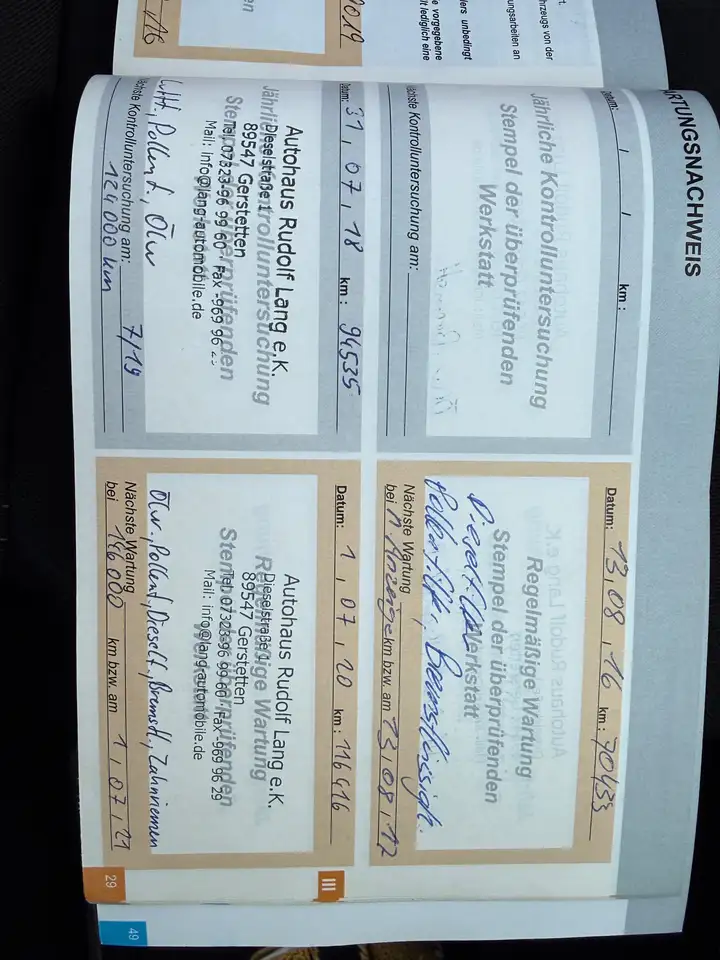 WARTUNGSNACHWEIS
Datum: / / km :
Jährliche Kontrolluntersuchung
Stempel der überprüfenden
Werkstatt
Nächste Kontrolluntersuchung am:
Datum: 13, 08, 16 km : 70433
Regelmäßige Wartung
Stempel der überprüfenden
Werkstatt
Dieselfilter
Pollenfilt., Bremsflüssigk.
Nächste Wartung
bei n. Anzeige km bzw. am 13, 08, 17
Datum: 31, 07, 18 km : 94535
Autohaus Rudolf Lang e.K.
Jährliche Kontrolluntersuchung
Dieselstraße 1
89547 Gerstetten
Stempel der überprüfenden
Tel. 07323-96 99 60 · Fax -969 96
Mail: info@lang-automobile.de
Luftf., Pollenf., Ölw
Nächste Kontrolluntersuchung am: 7/19
124 000 km
Datum: 1, 07, 20 km : 116416
Autohaus Rudolf Lang e.K.
Regelmäßige Wartung
Dieselstraße 1
89547 Gerstetten
Stempel der überprüfenden
Tel. 07323-96 99 60 · Fax -969 96 29
Werkstatt
Mail: info@lang-automobile.de
Ölw., Pollenf., Dieself., Bremsfl., Zahnriemen
Nächste Wartung
bei 146000 km bzw. am 1, 07, 21
III
29
49
2019
hrzeugs von der
ungsarbeiten an
ers unbedingt
e vorgegebene
lt lediglich eine